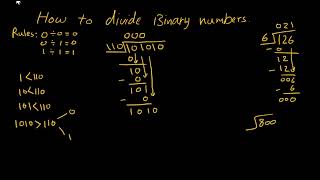 How to divide Binary numbers.
Rules: 0 ÷ 0 = 0
0 ÷ 1 = 0
1 ÷ 1 = 1
000
110 101010
0
101
- 0
101
- 0
1010
1 < 110
10 < 110
101 < 110
1010 > 110
0
1
021
6 126
- 0
12
- 12
006
- 6
000
800